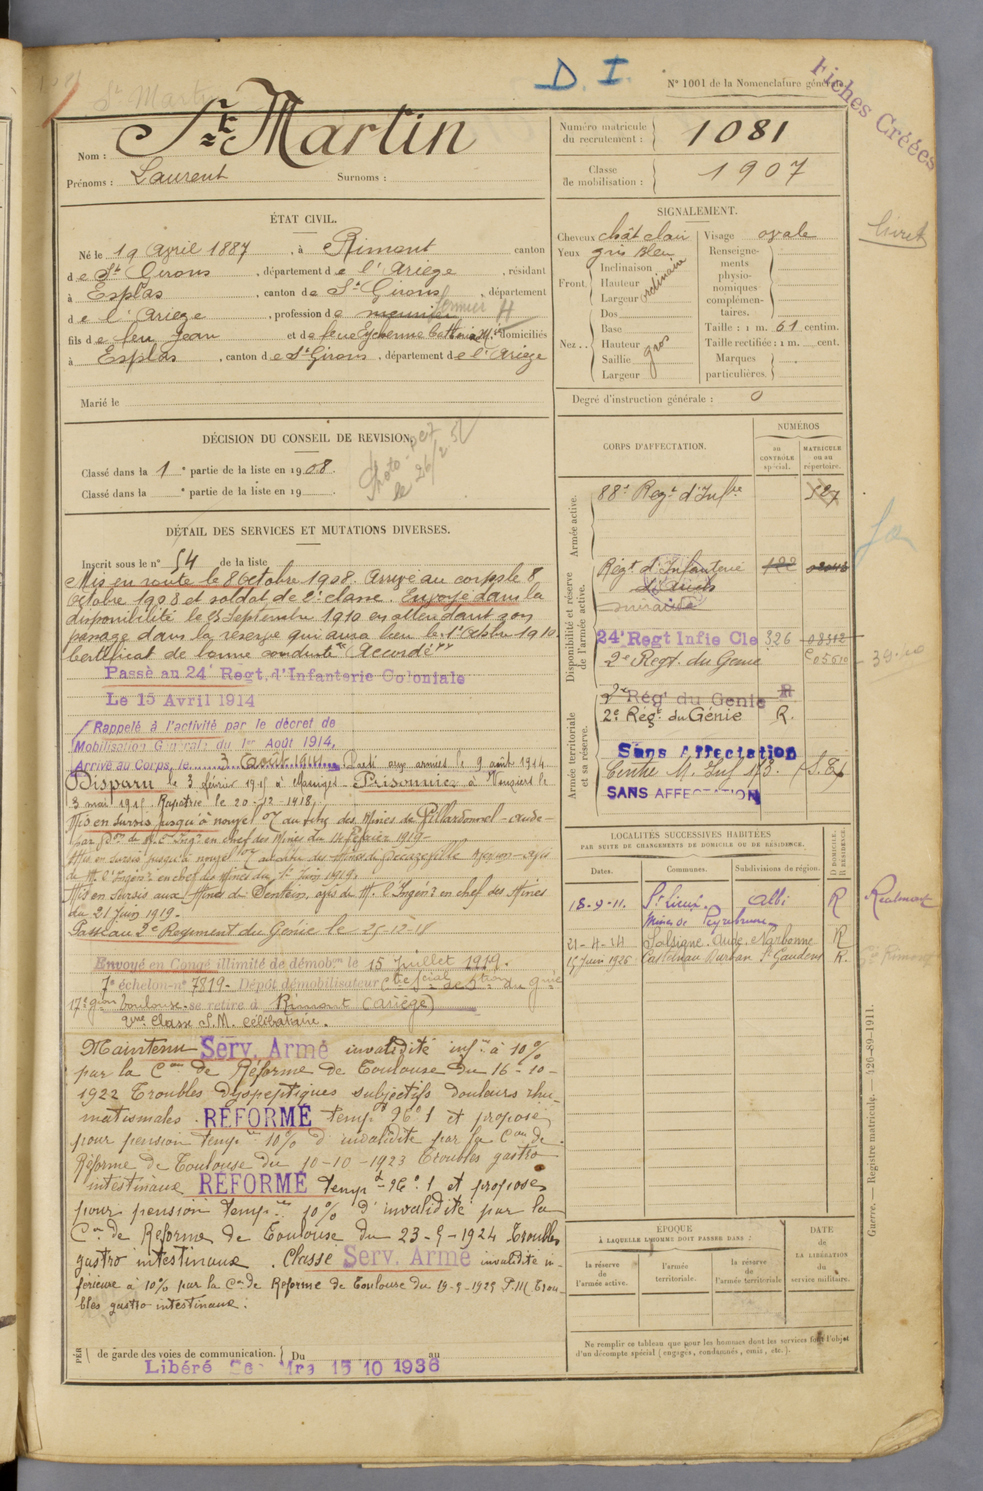 D. I.
N° 1001 de la Nomenclature générale
Fiches Créées
St Martin
Nom : St Martin
Prénoms : Laurent Surnoms :
Numéro matricule du recrutement : 1081
Classe de mobilisation : 1907
ÉTAT CIVIL.
Né le 19 Avril 1887, à Rimont canton
de St Girons, département de l'Ariège, résidant
à Esplas, canton de St Girons, département
de l'Ariège, profession de meunier fermier H
fils de feu Jean et de feue Eychenne Catherine domiciliés
à Esplas, canton de St Girons, département de l'Ariège
Marié le
SIGNALEMENT.
Cheveux chât clair Visage ovale
Yeux gris bleu
Front. Inclinaison Hauteur Largeur ordinaire
Nez.. Dos Base Hauteur Saillie Largeur gros
Renseignements physionomiques complémentaires.
Taille : 1 m. 61 centim.
Taille rectifiée : 1 m. cent.
Marques particulières.
Degré d'instruction générale : 0
livret
DÉCISION DU CONSEIL DE REVISION.
Classé dans la 1e partie de la liste en 1908.
Classé dans la e partie de la liste en 19
DÉTAIL DES SERVICES ET MUTATIONS DIVERSES.
Inscrit sous le n° 54 de la liste
Mis en route le 8 octobre 1908. Arrivé au corps le 8
octobre 1908 et soldat de 2e classe. Envoyé dans la
disponibilité le 25 Septembre 1910 en attendant son
passage dans la réserve qui aura lieu le 1er Octobre 1910.
Certificat de bonne conduite Accordé
Passé au 24e Regt. d'Infanterie Coloniale
Le 15 Avril 1914
Rappelé à l'activité par le décret de
Mobilisation Générale du 1er Août 1914,
Arrivé au Corps, le 3 Août 1914. Parti aux armées le 9 août 1914
Disparu le 3 février 1915 à Massiges - Prisonnier à Vouziers le
3 mai 1915. Rapatrié le 20-12-1918.
Mis en Sursis jusqu'à nouvel or au titre des Mines de Villardonnel - Aude -
par Don de M. l'Ingr en chef des Mines du 14 février 1919-
Mis en sursis jusqu'à nouvel or au titre des Mines de Decazeville Aveyron - avis
de M. l'Ingénr en chef des Mines du 1er Juin 1919.
Mis en Sursis aux Mines de Sentein, avis de M. l'Ingénr en chef des Mines
du 21 Juin 1919.
Passé au 2e Regiment du Génie le 25-12-18
Envoyé en Congé illimité de démobon le 15 Juillet 1919.
7e échelon - n° 7819 - Dépôt démobilisateur du génie
17e gion Toulouse - se retire à Rimont (Ariège)
2me Classe S.M. célibataire.
Maintenu Serv. Armé invalidité infre à 10%
par la Con de Réforme de Toulouse du 16-10-
1922 Troubles dyspeptiques subjectifs douleurs rhu-
matismales. RÉFORMÉ tempre N° 1 et proposé
pour pension tempre 10% d'invalidité par la Con de
Réforme de Toulouse du 10-10-1923 Troubles gastro
intestinaux RÉFORMÉ tempre N° 1 et proposé
pour pension tempre 10% d'invalidité par la
Con de Réforme de Toulouse du 23-5-1924 Troubles
gastro intestinaux. Classé Serv. Armé invalidité in-
férieure à 10% par la Con de Réforme de Toulouse du 19-5-1925 P.M. Trou-
bles gastro-intestinaux.
de garde des voies de communication. Du au
Libéré 15 10 1936
CORPS D'AFFECTATION.
NUMÉROS
au CONTRÔLE spécial.
MATRICULE ou au répertoire.
Armée active.
88e Regt d'Infie 527
Disponibilité et réserve de l'armée active.
Régt d'Infanterie
24e Regt Infie Cle 326 08312
2e Regt. du Génie 05610
Armée territoriale et sa réserve.
2e Rég du Genie R
2e Régt du Génie R.
Sans Affectation
Centre M. Inf 173. (S.E)
SANS AFFECTATION
LOCALITÉS SUCCESSIVES HABITÉES
PAR SUITE DE CHANGEMENTS DE DOMICILE OU DE RÉSIDENCE.
Dates. Communes. Subdivisions de région. D DOMICILE. R RÉSIDENCE.
18-9-11. St Lieux. Albi R Réalmont
Mines de Peyrebrune
21-4-14 Salsigne. Aude. Narbonne R
15 Juin 1926 Castelnau Durban St Gaudens R.
Guerre. — Registre matricule. — 426-89-1911.
ÉPOQUE À LAQUELLE L'HOMME DOIT PASSER DANS :
la réserve de l'armée active. l'armée territoriale. la réserve de l'armée territoriale
DATE de LA LIBÉRATION du service militaire.
Ne remplir ce tableau que pour les hommes dont les services font l'objet
d'un décompte spécial (engagés, condamnés, omis, etc.).